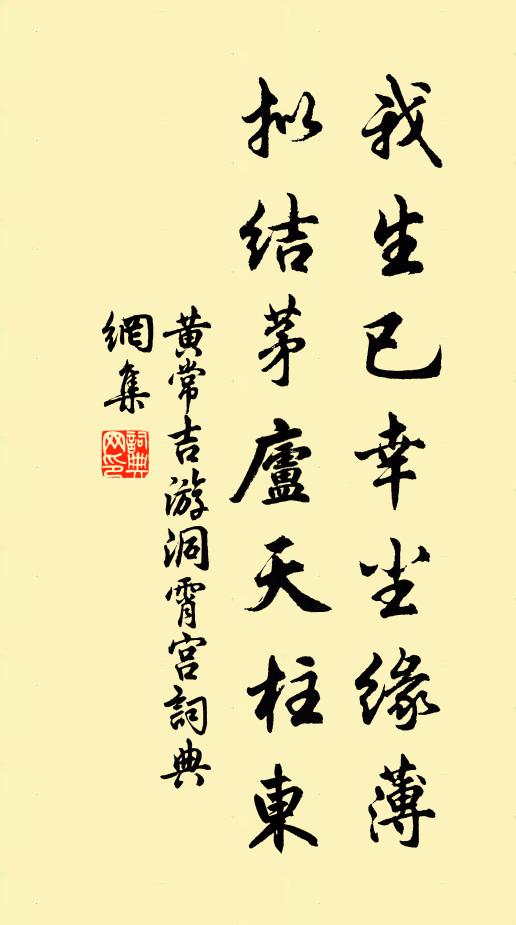 我生已幸尘缘薄
拟结茅廬天柱東
黄常吉游洞霄宫詞典
網集
詞典网印